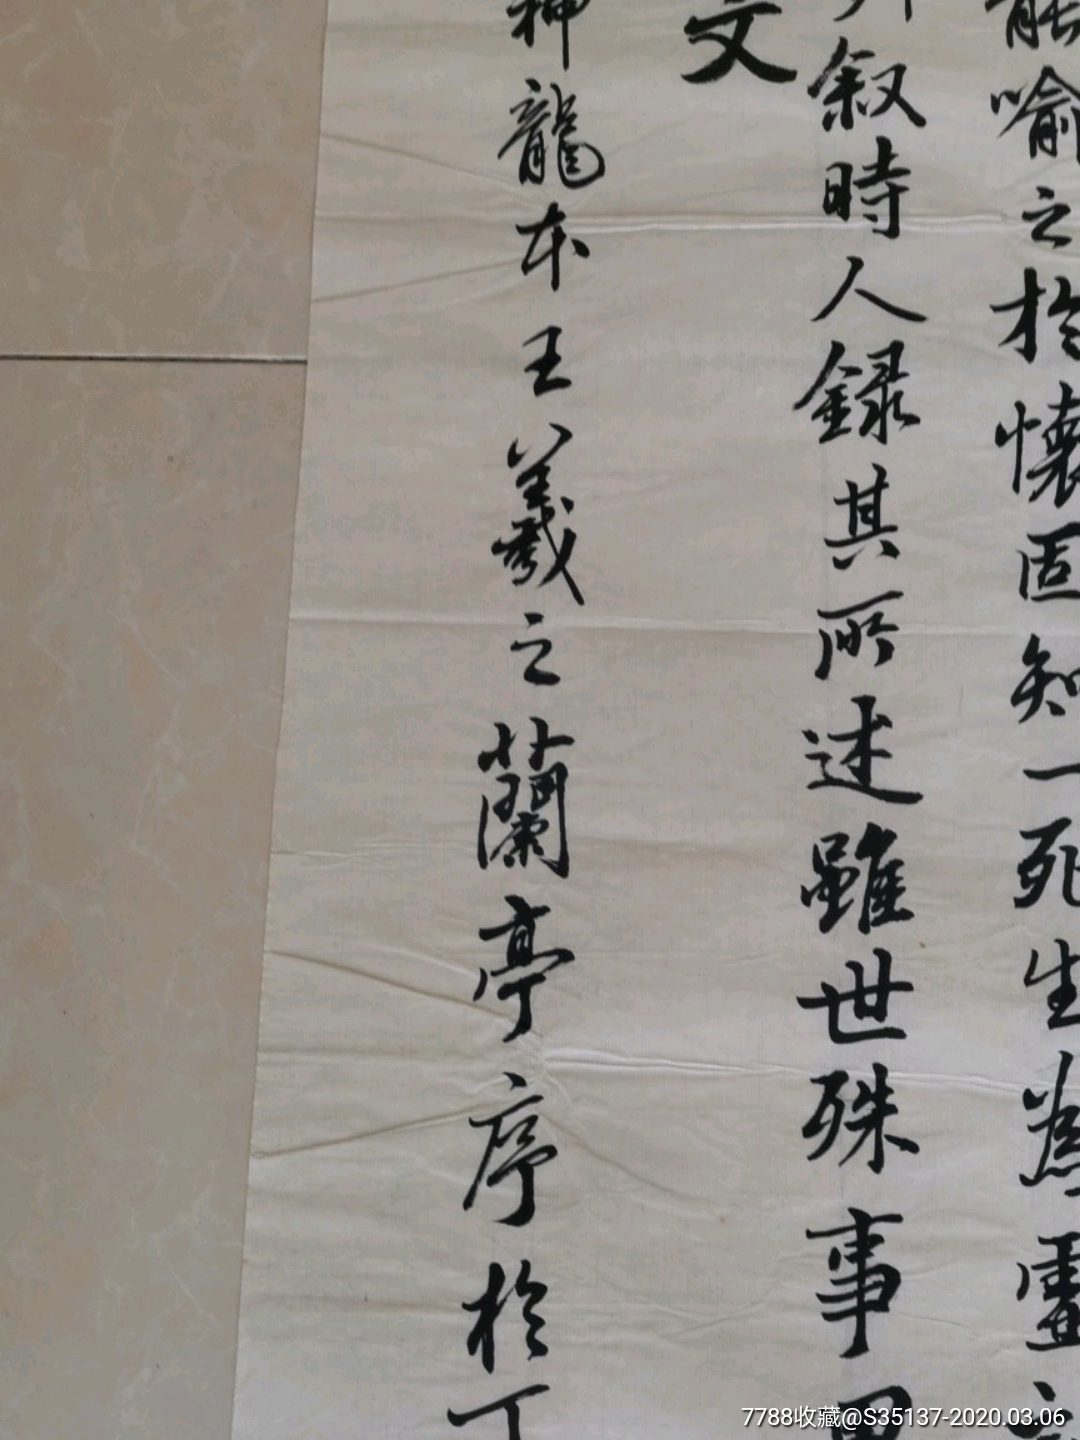 能喻之於懷固知一死生為虛
列叙時人録其所述雖世殊事
文
神龍本王羲之蘭亭序於丁
7788收藏@S35137-2020.03.06